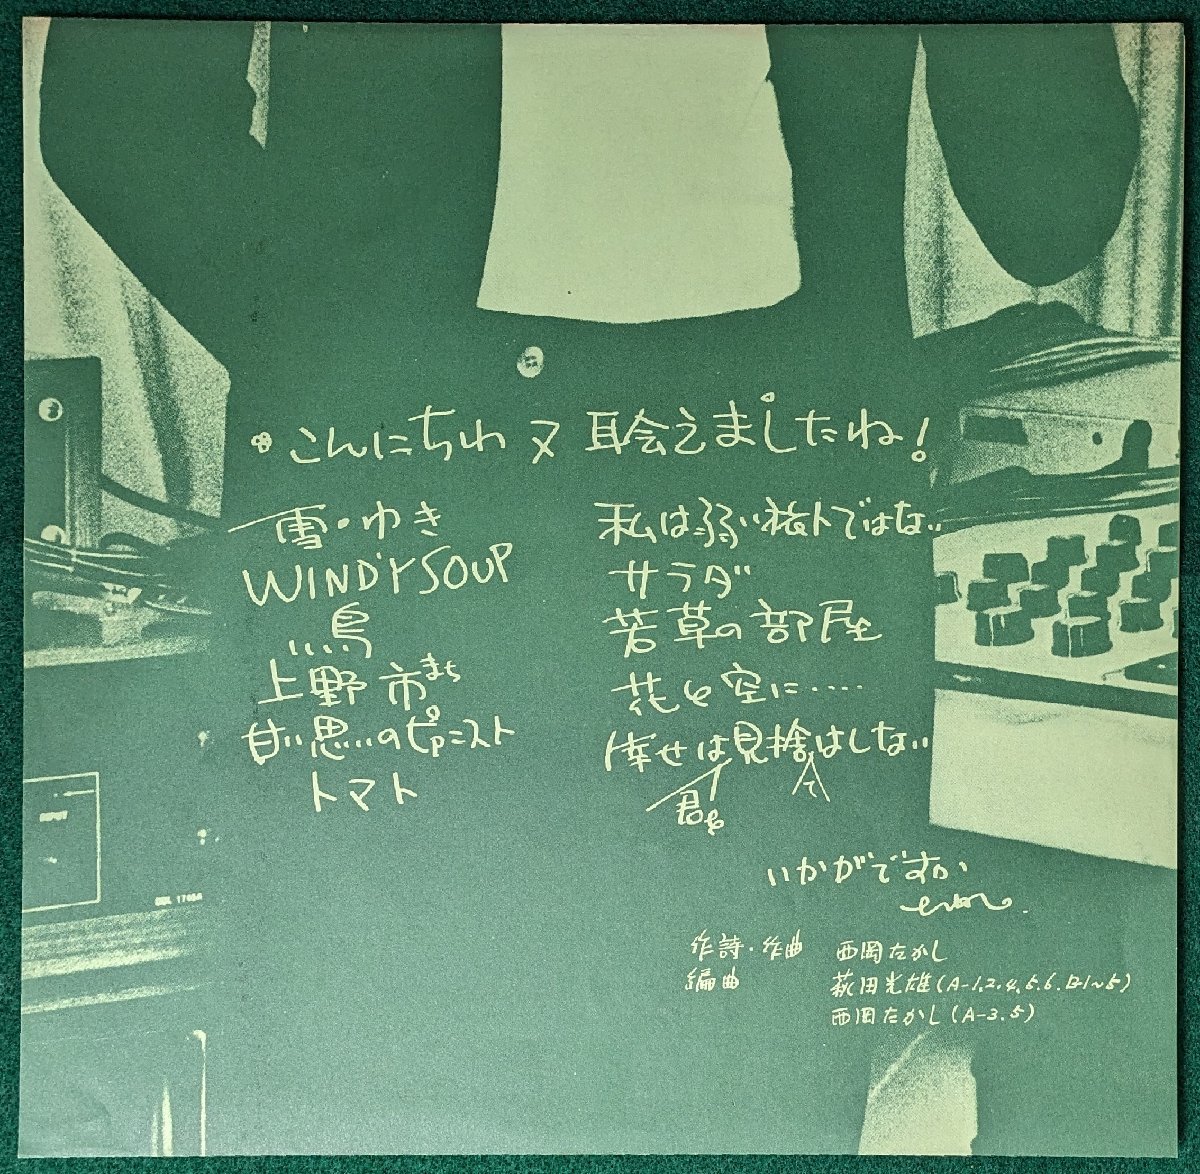 こんにちわ 又 聡えましたね!
雪・ゆき
WINDY SOUP
鳥
上野市まち
甘い思いのピアニスト
トマト
私は弱い旅人ではない
サラダ
若草の部屋
花を空に‥‥
倖せは見捨はしない
君を
て
いかがですか
作詩・作曲 西岡たかし
編曲 萩田光雄(A-1.2.4.5.6.B-1~5)
西岡たかし(A-3.5)
INPUT